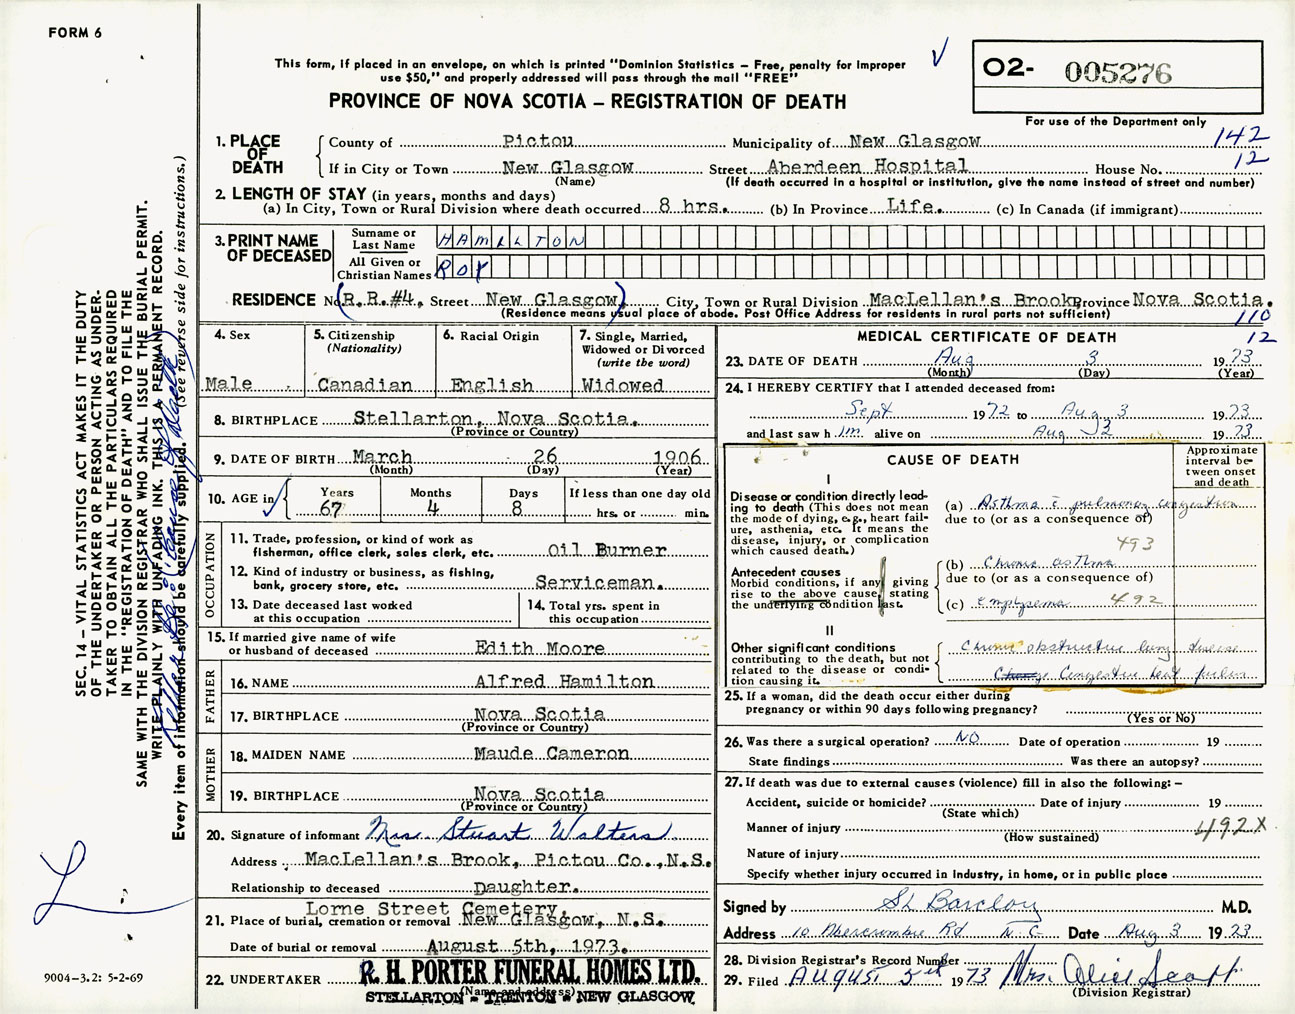 FORM 6
This form, if placed in an envelope, on which is printed "Dominion Statistics – Free, penalty for improper
use $50," and properly addressed will pass through the mail "FREE"
PROVINCE OF NOVA SCOTIA – REGISTRATION OF DEATH
O2- 005276
For use of the Department only
1. PLACE OF DEATH
County of Pictou Municipality of New Glasgow 142
If in City or Town New Glasgow Street Aberdeen Hospital House No. 12
(Name) (If death occurred in a hospital or institution, give the name instead of street and number)
2. LENGTH OF STAY (in years, months and days)
(a) In City, Town or Rural Division where death occurred 8 hrs. (b) In Province Life. (c) In Canada (if immigrant)
3. PRINT NAME OF DECEASED
Surname or Last Name HAMILTON
All Given or Christian Names ROY
RESIDENCE No. (R.R.#4, Street New Glasgow) City, Town or Rural Division MacLellan's Brook Province Nova Scotia.
(Residence means usual place of abode. Post Office Address for residents in rural parts not sufficient) 110
12
4. Sex
Male
5. Citizenship
(Nationality)
Canadian
6. Racial Origin
English
7. Single, Married,
Widowed or Divorced
(write the word)
Widowed
8. BIRTHPLACE Stellarton, Nova Scotia.
(Province or Country)
9. DATE OF BIRTH March 26 1906
(Month) (Day) (Year)
10. AGE in Years Months Days If less than one day old
67 4 8 hrs. or min.
OCCUPATION
11. Trade, profession, or kind of work as
fisherman, office clerk, sales clerk, etc. Oil Burner
12. Kind of industry or business, as fishing,
bank, grocery store, etc. Serviceman.
13. Date deceased last worked
at this occupation
14. Total yrs. spent in
this occupation
15. If married give name of wife
or husband of deceased Edith Moore
FATHER
16. NAME Alfred Hamilton
17. BIRTHPLACE Nova Scotia
(Province or Country)
MOTHER
18. MAIDEN NAME Maude Cameron
19. BIRTHPLACE Nova Scotia
(Province or Country)
20. Signature of informant Mrs. Stuart Walters
Address MacLellan's Brook, Pictou Co., N.S.
Relationship to deceased Daughter.
Lorne Street Cemetery,
21. Place of burial, cremation or removal New Glasgow, N.S.
Date of burial or removal August 5th, 1973.
22. UNDERTAKER R. H. PORTER FUNERAL HOMES LTD.
(Name and address)
STELLARTON - TRENTON - NEW GLASGOW
MEDICAL CERTIFICATE OF DEATH
23. DATE OF DEATH Aug 3 1973
(Month) (Day) (Year)
24. I HEREBY CERTIFY that I attended deceased from:
Sept 1972 to Aug 3 1973
and last saw h im alive on Aug 3 1973
CAUSE OF DEATH
Approximate
interval be-
tween onset
and death
I
Disease or condition directly lead-
ing to death (This does not mean
the mode of dying, e.g., heart fail-
ure, asthenia, etc. It means the
disease, injury, or complication
which caused death.)
(a) Asthma c pulmonary congestion
due to (or as a consequence of)
493
Antecedent causes
Morbid conditions, if any giving
rise to the above cause, stating
the underlying condition last.
(b) Chronic asthma
due to (or as a consequence of)
(c) Emphysema 492
II
Other significant conditions
contributing to the death, but not
related to the disease or condi-
tion causing it.
Chronic obstructive lung disease
Congestive heart failure
25. If a woman, did the death occur either during
pregnancy or within 90 days following pregnancy?
(Yes or No)
26. Was there a surgical operation? NO Date of operation 19
State findings Was there an autopsy?
27. If death was due to external causes (violence) fill in also the following: –
Accident, suicide or homicide? Date of injury 19
(State which)
Manner of injury 492X
(How sustained)
Nature of injury
Specify whether injury occurred in industry, in home, or in public place
Signed by Barclay M.D.
Address 10 Abercrombie Rd N.G. Date Aug 3 1973
28. Division Registrar's Record Number
29. Filed AUGUST 5th 1973 Mrs. Alice Scott
(Division Registrar)
SEC. 14 – VITAL STATISTICS ACT MAKES IT THE DUTY
OF THE UNDERTAKER OR PERSON ACTING AS UNDER-
TAKER TO OBTAIN ALL THE PARTICULARS REQUIRED
IN THE "REGISTRATION OF DEATH" AND TO FILE THE
SAME WITH THE DIVISION REGISTRAR WHO SHALL ISSUE THE BURIAL PERMIT.
WRITE PLAINLY WITH UNFADING INK. THIS IS A PERMANENT RECORD.
Every item of information should be carefully supplied. (See reverse side for instructions.)
L
9004–3.2: 5-2-69